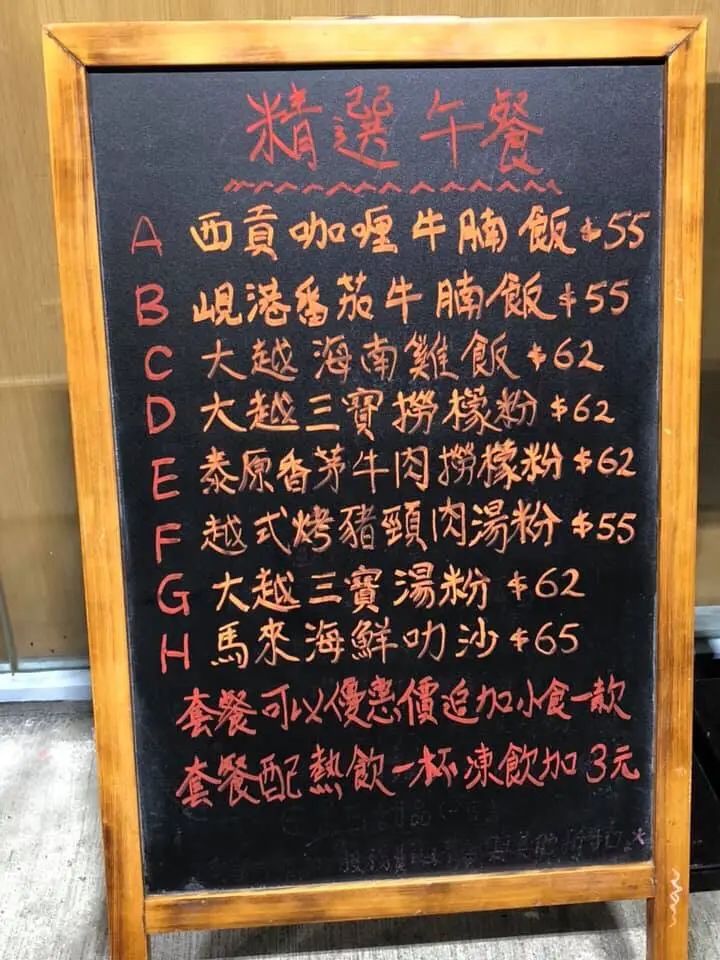 精選午餐
A 西貢咖喱牛腩飯 $55
B 峴港番茄牛腩飯 $55
C 大越海南雞飯 $62
D 大越三寶撈檬粉 $62
E 泰原香茅牛肉撈檬粉 $62
F 越式烤豬頸肉湯粉 $55
G 大越三寶湯粉 $62
H 馬來海鮮叻沙 $65
套餐可以優惠價追加小食一款
套餐配熱飲一杯凍飲加3元